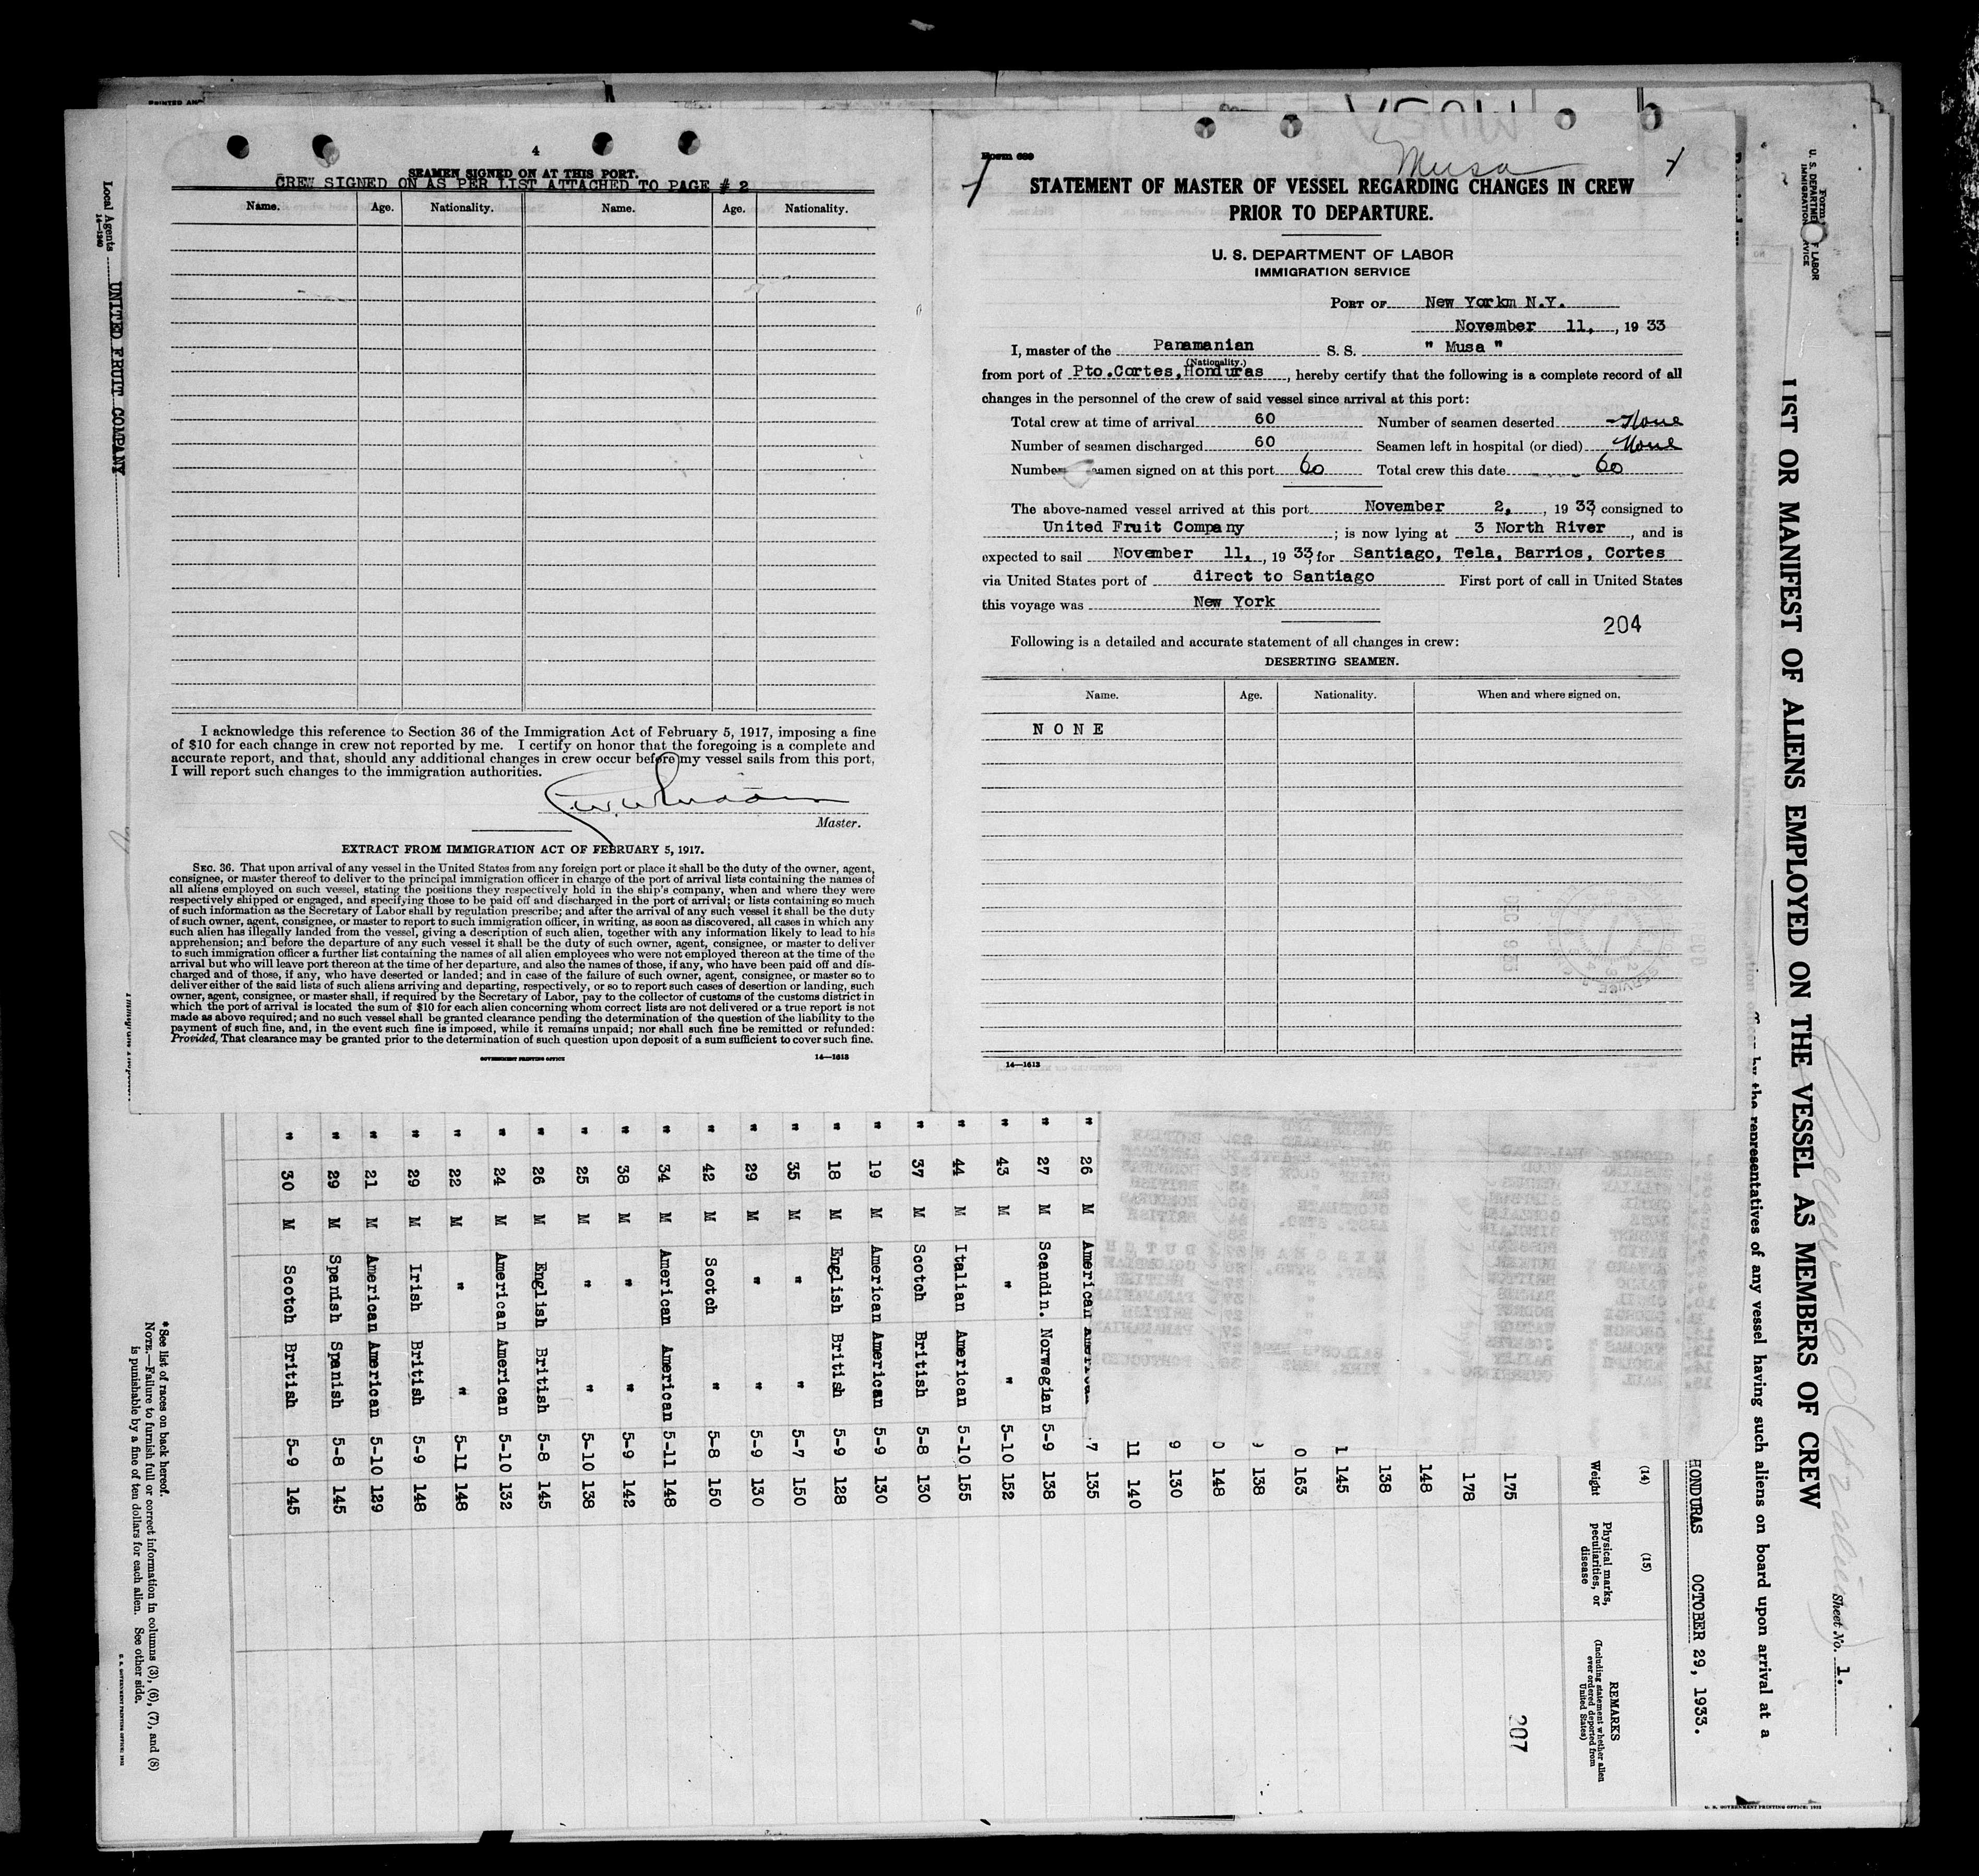 4
SEAMEN SIGNED ON AT THIS PORT.
CREW SIGNED ON AS PER LIST ATTACHED TO PAGE # 2
Name. Age. Nationality. Name. Age. Nationality.
I acknowledge this reference to Section 36 of the Immigration Act of February 5, 1917, imposing a fine
of $10 for each change in crew not reported by me. I certify on honor that the foregoing is a complete and
accurate report, and that, should any additional changes in crew occur before my vessel sails from this port,
I will report such changes to the immigration authorities.
Master.
EXTRACT FROM IMMIGRATION ACT OF FEBRUARY 5, 1917.
SEC. 36. That upon arrival of any vessel in the United States from any foreign port or place it shall be the duty of the owner, agent,
consignee, or master thereof to deliver to the principal immigration officer in charge of the port of arrival lists containing the names of
all aliens employed on such vessel, stating the positions they respectively hold in the ship's company, when and where they were
respectively shipped or engaged, and specifying those to be paid off and discharged in the port of arrival; or lists containing so much
of such information as the Secretary of Labor shall by regulation prescribe; and after the arrival of any such vessel it shall be the duty
of such owner, agent, consignee, or master to report to such immigration officer, in writing, as soon as discovered, all cases in which any
such alien has illegally landed from the vessel, giving a description of such alien, together with any information likely to lead to his
apprehension; and before the departure of any such vessel it shall be the duty of such owner, agent, consignee, or master to deliver
to such immigration officer a further list containing the names of all alien employees who were not employed thereon at the time of the
arrival but who will leave port thereon at the time of her departure, and also the names of those, if any, who have been paid off and dis-
charged and of those, if any, who have deserted or landed; and in case of the failure of such owner, agent, consignee, or master so to
deliver either of the said lists of such aliens arriving and departing, respectively, or so to report such cases of desertion or landing, such
owner, agent, consignee, or master shall, if required by the Secretary of Labor, pay to the collector of customs of the customs district in
which the port of arrival is located the sum of $10 for each alien concerning whom correct lists are not delivered or a true report is not
made as above required; and no such vessel shall be granted clearance pending the determination of the question of the liability to the
payment of such fine, and, in the event such fine is imposed, while it remains unpaid; nor shall such fine be remitted or refunded:
Provided, That clearance may be granted prior to the determination of such question upon deposit of a sum sufficient to cover such fine.
GOVERNMENT PRINTING OFFICE 14—1613
Form 689
Musa
STATEMENT OF MASTER OF VESSEL REGARDING CHANGES IN CREW
PRIOR TO DEPARTURE.
U. S. DEPARTMENT OF LABOR
IMMIGRATION SERVICE
PORT OF New Yorkm N.Y.
November 11, , 19 33
I, master of the Panamanian S. S. " Musa "
(Nationality.)
from port of Pto.Cortes,Honduras , hereby certify that the following is a complete record of all
changes in the personnel of the crew of said vessel since arrival at this port:
Total crew at time of arrival 60 Number of seamen deserted None
Number of seamen discharged 60 Seamen left in hospital (or died) None
Number seamen signed on at this port 60 Total crew this date 60
The above-named vessel arrived at this port November 2, , 19 33, consigned to
United Fruit Company ; is now lying at 3 North River , and is
expected to sail November 11, , 19 33, for Santiago, Tela, Barrios, Cortes
via United States port of direct to Santiago First port of call in United States
this voyage was New York
204
Following is a detailed and accurate statement of all changes in crew:
DESERTING SEAMEN.
Name. Age. Nationality. When and where signed on.
N O N E
14—1613
Local Agents UNITED FRUIT COMPANY
14—1240
U. S. DEPARTMENT OF LABOR
IMMIGRATION SERVICE
LIST OR MANIFEST OF ALIENS EMPLOYED ON THE VESSEL AS MEMBERS OF CREW
Sheet No. 1.
by the representatives of any vessel having such aliens on board upon arrival at a
HONDURAS OCTOBER 29, 1933.
(14) (15)
Weight
Physical marks, peculiarities, or disease
REMARKS
(Including statement whether alien ever ordered deported from United States)
207
175
178
148
138
1 145
0 163
138
0 148
9 130
11 140
" 26 M American 7 135
" 27 M Scandin. Norwegian 5-9 138
" 43 M " " 5-10 152
" 44 M Italian American 5-10 155
" 37 M Scotch British 5-8 130
" 19 M American American 5-9 130
" 18 M English British 5-9 128
" 35 M " " 5-7 150
" 29 M " " 5-9 130
" 42 M Scotch " 5-8 150
" 34 M American American 5-11 148
" 38 M " " 5-9 142
" 25 M " " 5-10 138
" 26 M English British 5-8 145
" 24 M American American 5-10 132
" 22 M " " 5-11 148
" 29 M Irish British 5-9 148
" 21 M American American 5-10 129
" 29 M Spanish Spanish 5-8 145
" 30 M Scotch British 5-9 145
*See list of races on back hereof.
NOTE.—Failure to furnish full or correct information in columns (3), (6), (7), and (8)
is punishable by a fine of ten dollars for each alien. See other side.
U. S. GOVERNMENT PRINTING OFFICE: 1932